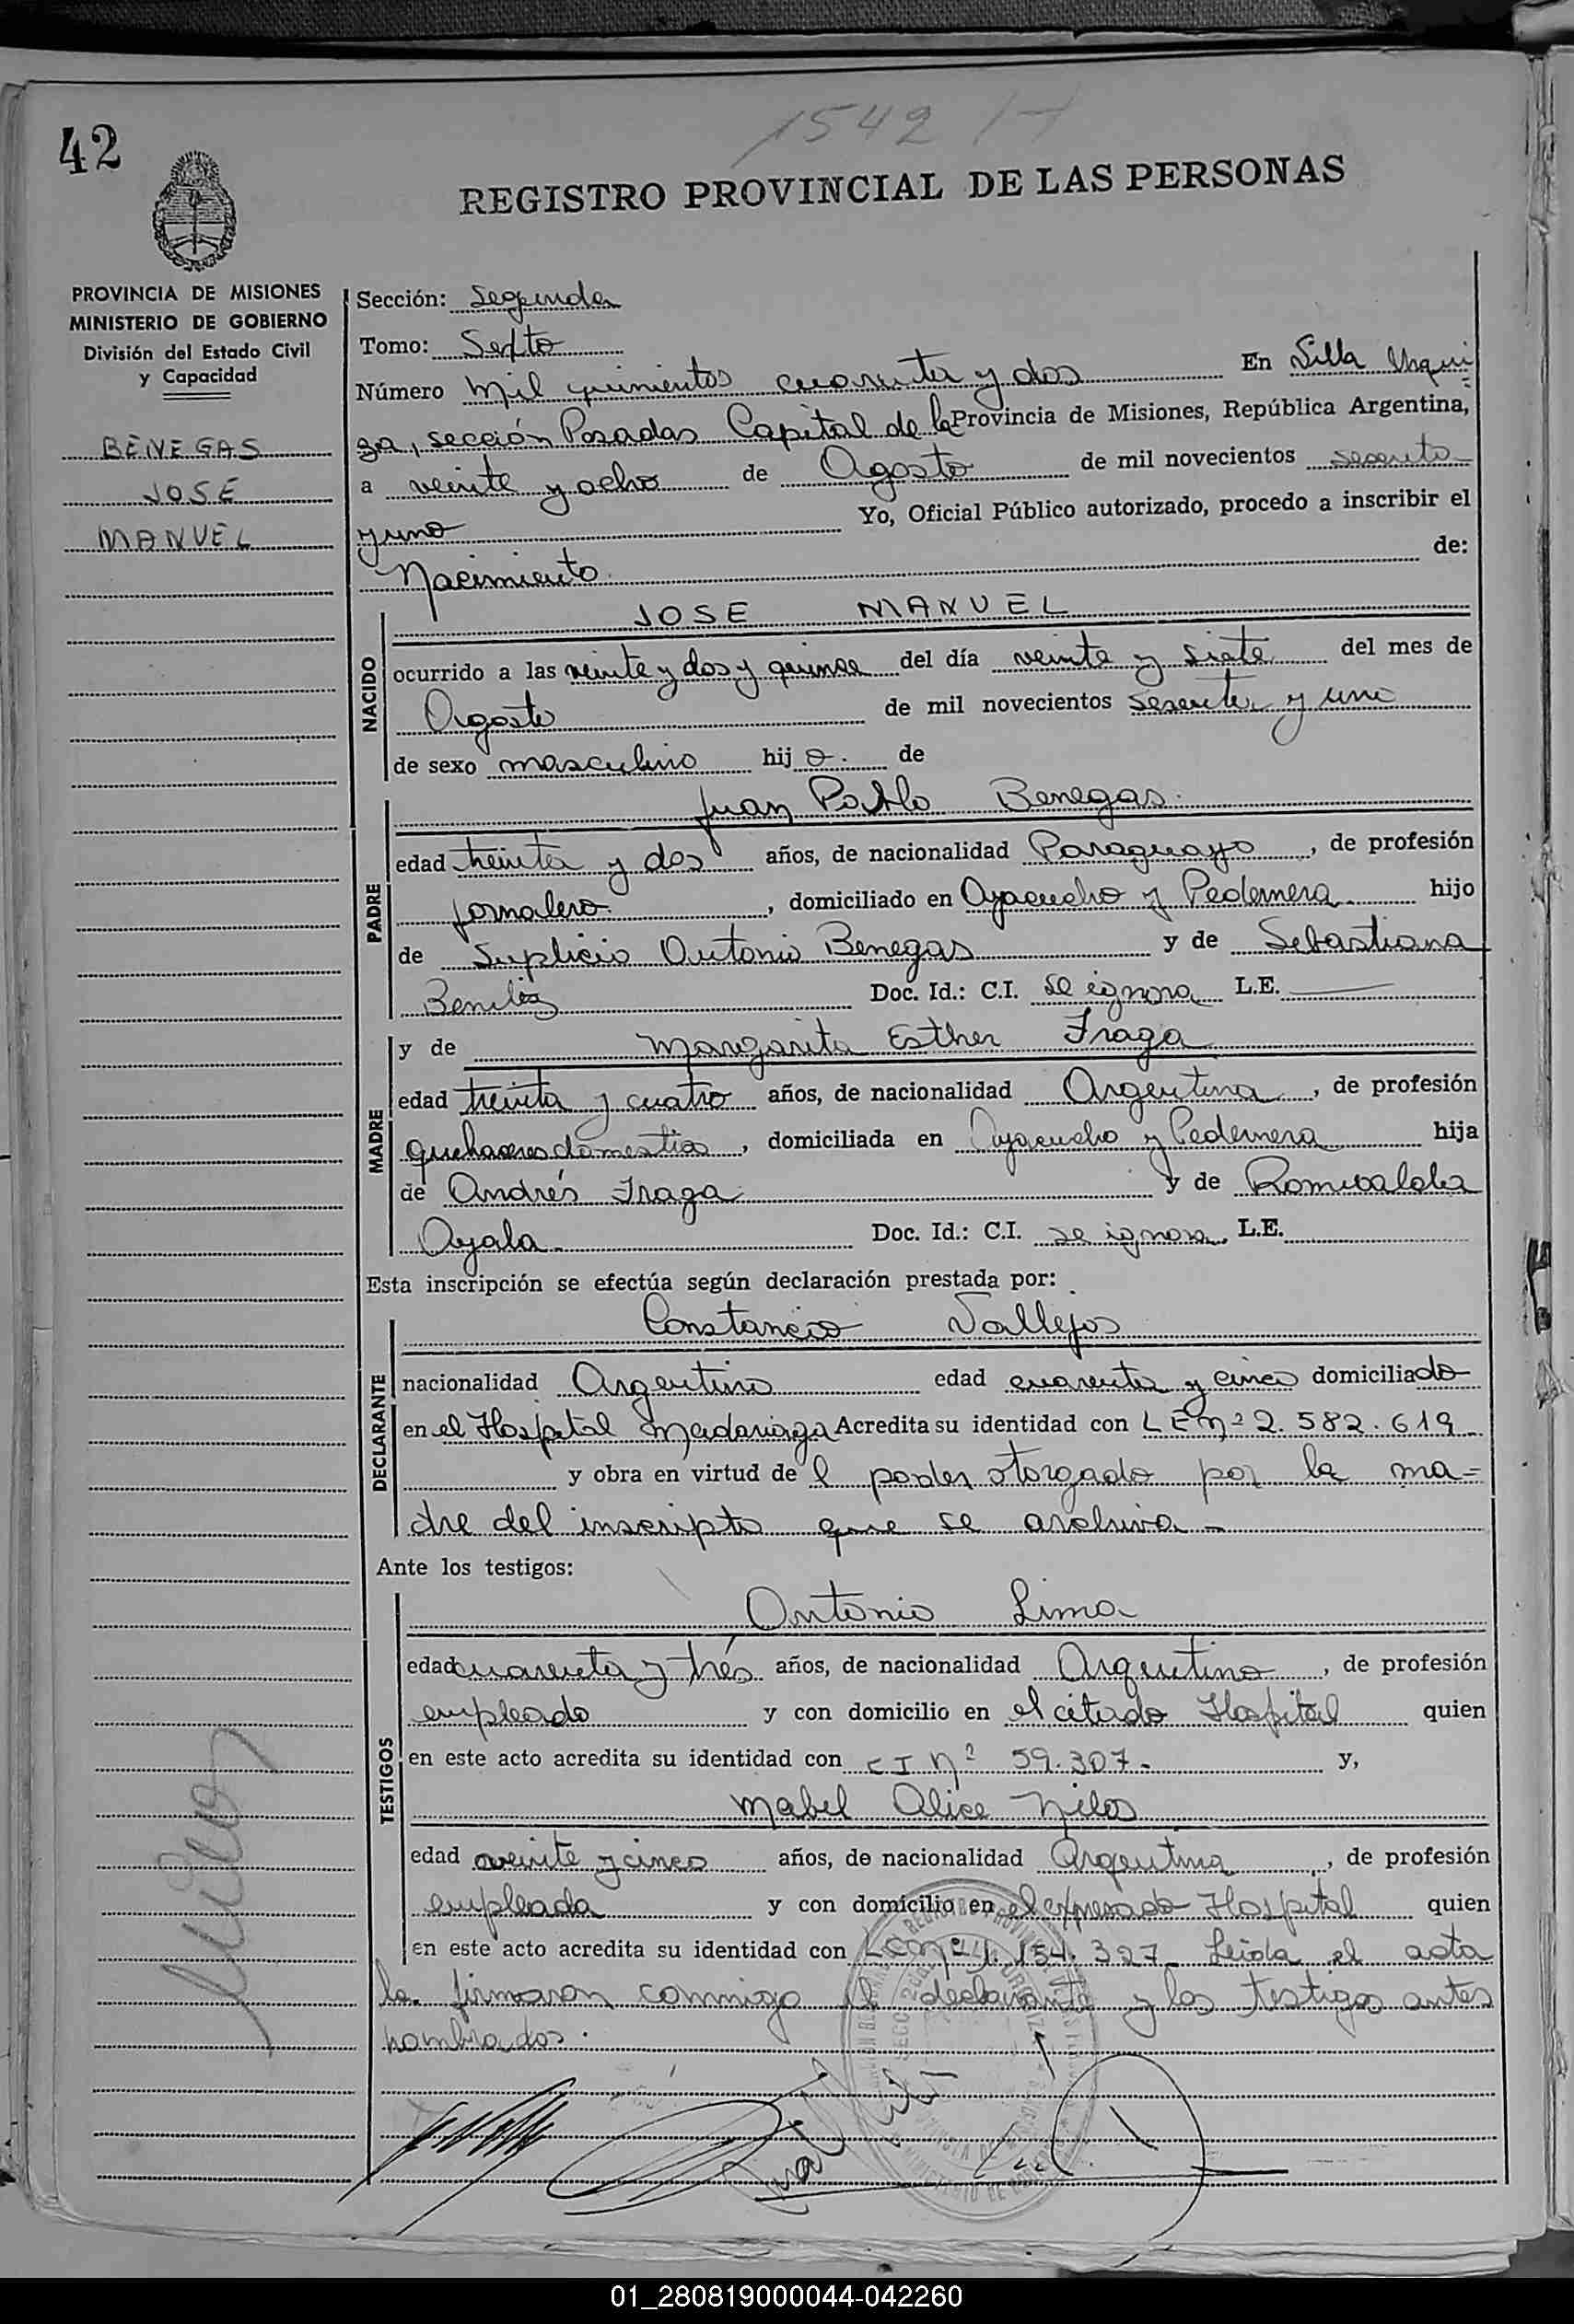 42
1542
REGISTRO PROVINCIAL DE LAS PERSONAS
PROVINCIA DE MISIONES
MINISTERIO DE GOBIERNO
División del Estado Civil
y Capacidad
BENEGAS
JOSÉ
MANUEL
Sección: Segunda
Tomo: Sexto
Número mil quinientos cuarenta y dos En Villa Urqui
za, sección Posadas Capital de la Provincia de Misiones, República Argentina,
a veinte y ocho de Agosto de mil novecientos sesenta
y uno Yo, Oficial Público autorizado, procedo a inscribir el
Nacimiento de:
NACIDO
JOSE MANUEL
ocurrido a las veinte y dos y quince del día veinte y siete del mes de
Agosto de mil novecientos sesenta y uno
de sexo masculino hijo. de
PADRE
Juan Pablo Benegas.
edad treinta y dos años, de nacionalidad Paraguayo, de profesión
jornalero., domiciliado en Ayacucho y Pedernera. hijo
de Suplicio Antonio Benegas y de Sebastiana
Benitez Doc. Id.: C.I. se ignora L.E.
MADRE
y de Margarita Esther Fraga
edad treinta y cuatro años, de nacionalidad Argentina, de profesión
quehaceres domestico, domiciliada en Ayacucho y Pedernera hija
de Andrés Fraga y de Romualda
Ayala. Doc. Id.: C.I. se ignora. L.E.
Esta inscripción se efectúa según declaración prestada por:
DECLARANTE
Constancio Vallejos
nacionalidad Argentino edad cuarenta y cinco domiciliado
en el Hospital Madariaga Acredita su identidad con L E Nº 2.582.619
y obra en virtud de l poder otorgado por la ma=
dre del inscripto que se archiva.-
Ante los testigos:
TESTIGOS
Antonio Lima
edad cuarenta y trés años, de nacionalidad Argentino, de profesión
empleado y con domicilio en el citado Hospital quien
en este acto acredita su identidad con C I Nº 59.307.- y,
Mabel Alice
edad veinte y cinco años, de nacionalidad Argentina, de profesión
empleada y con domicilio en el expresado Hospital quien
en este acto acredita su identidad con 154.327 Leida el acta
la firmaron conmigo el declarante y los testigos antes
nombrados.
01_280819000044-042260